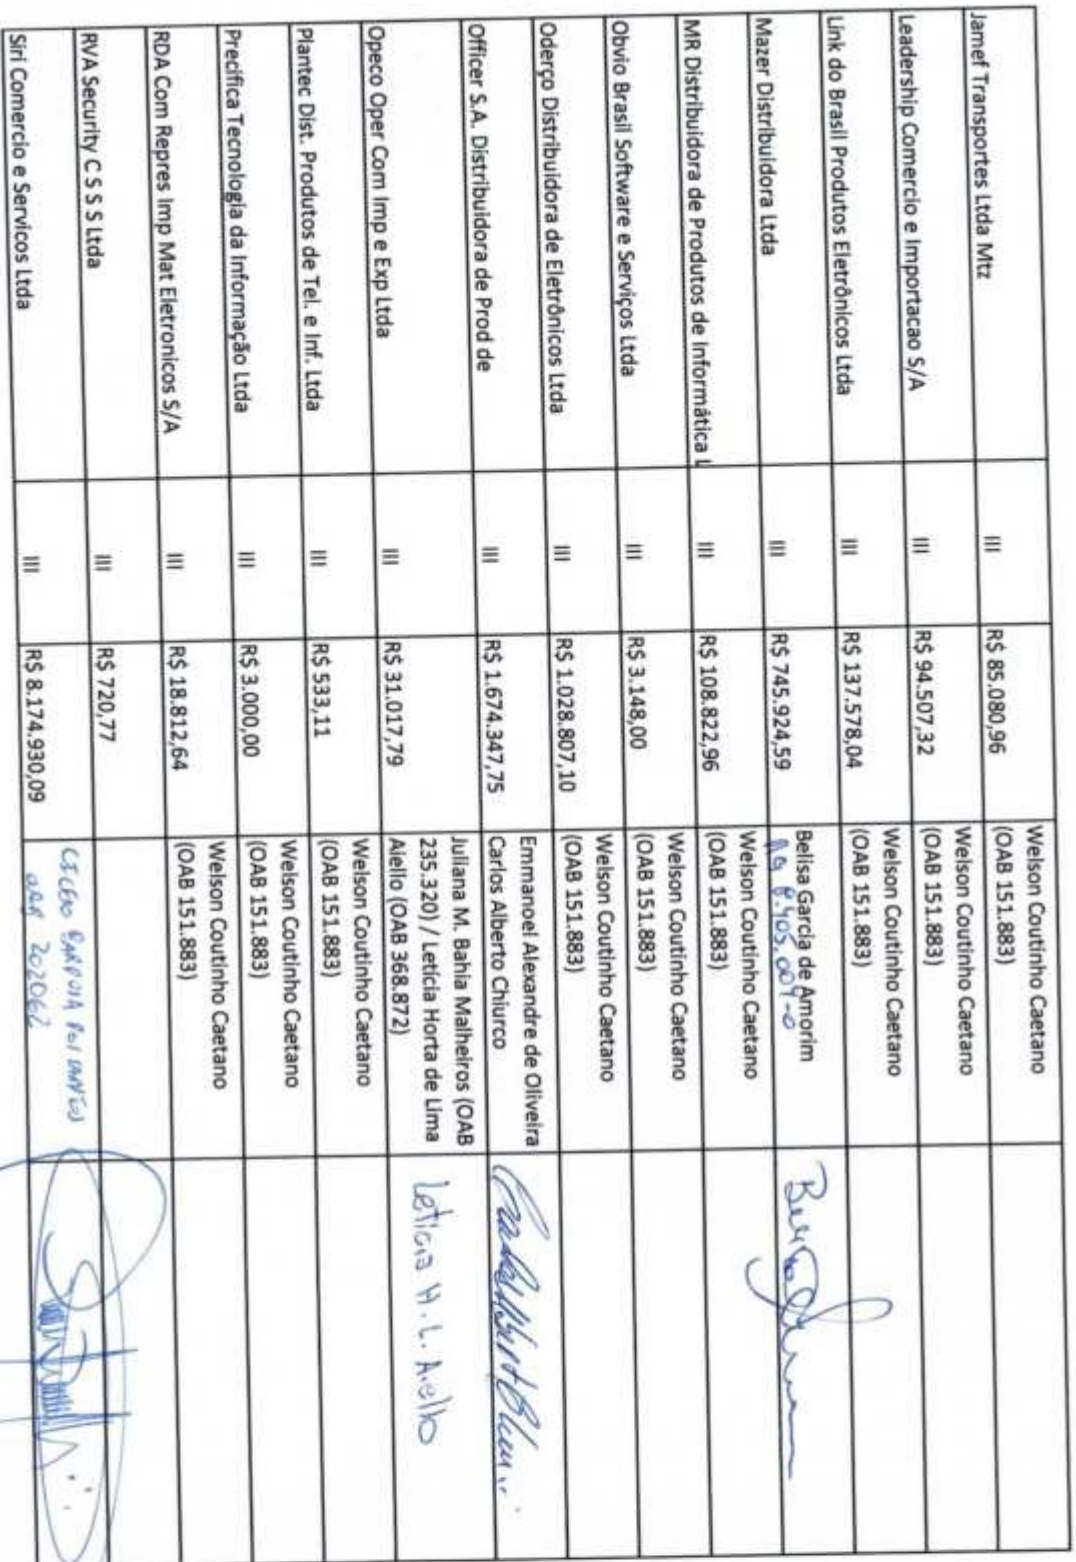 Jamef Transportes Ltda Mtz III R$ 85.080,96 Welson Coutinho Caetano
(OAB 151.883)
Leadership Comercio e Importacao S/A III R$ 94.507,32 Welson Coutinho Caetano
(OAB 151.883)
Link do Brasil Produtos Eletrônicos Ltda III R$ 137.578,04 Welson Coutinho Caetano
(OAB 151.883)
Mazer Distribuidora Ltda III R$ 745.924,59 Belisa Garcia de Amorim
MR Distribuidora de Produtos de Informática L III R$ 108.822,96 Welson Coutinho Caetano
(OAB 151.883)
Obvio Brasil Software e Serviços Ltda III R$ 3.148,00 Welson Coutinho Caetano
(OAB 151.883)
Oderço Distribuidora de Eletrônicos Ltda III R$ 1.028.807,10 Welson Coutinho Caetano
(OAB 151.883)
Officer S.A. Distribuidora de Prod de III R$ 1.674.347,75 Emmanoel Alexandre de Oliveira
Carlos Alberto Chiurco
Opeco Oper Com Imp e Exp Ltda III R$ 31.017,79 Juliana M. Bahia Malheiros (OAB
235.320) / Letícia Horta de Lima
Aiello (OAB 368.872)
Letícia H. L. Aiello
Plantec Dist. Produtos de Tel. e Inf. Ltda III R$ 533,11 Welson Coutinho Caetano
(OAB 151.883)
Precifica Tecnologia da Informação Ltda III R$ 3.000,00 Welson Coutinho Caetano
(OAB 151.883)
RDA Com Repres Imp Mat Eletronicos S/A III R$ 18.812,64 Welson Coutinho Caetano
(OAB 151.883)
RVA Security C S S S Ltda III R$ 720,77
Siri Comercio e Servicos Ltda III R$ 8.174.930,09
202062